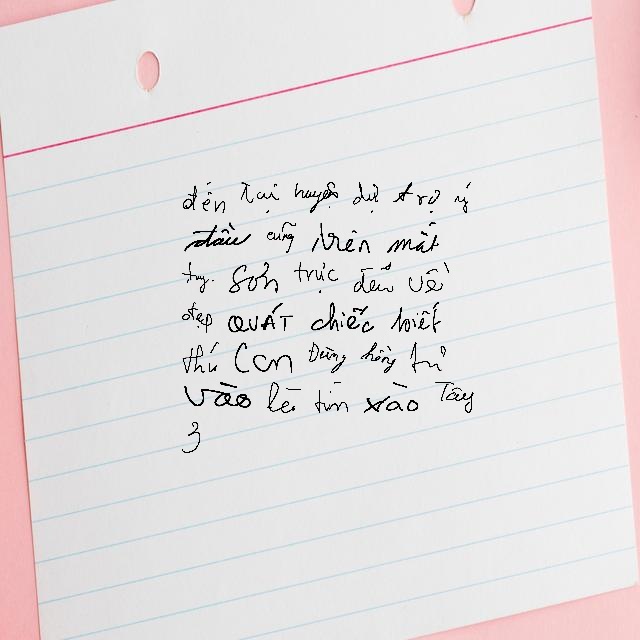 đến Tại huyện dự trợ ý
đầu cũng trên mất
Sơn trực đều về
đẹp QUÁT chiếc biết
thứ Con Dừng hồng từ
vào lê tìn xào Tây
3